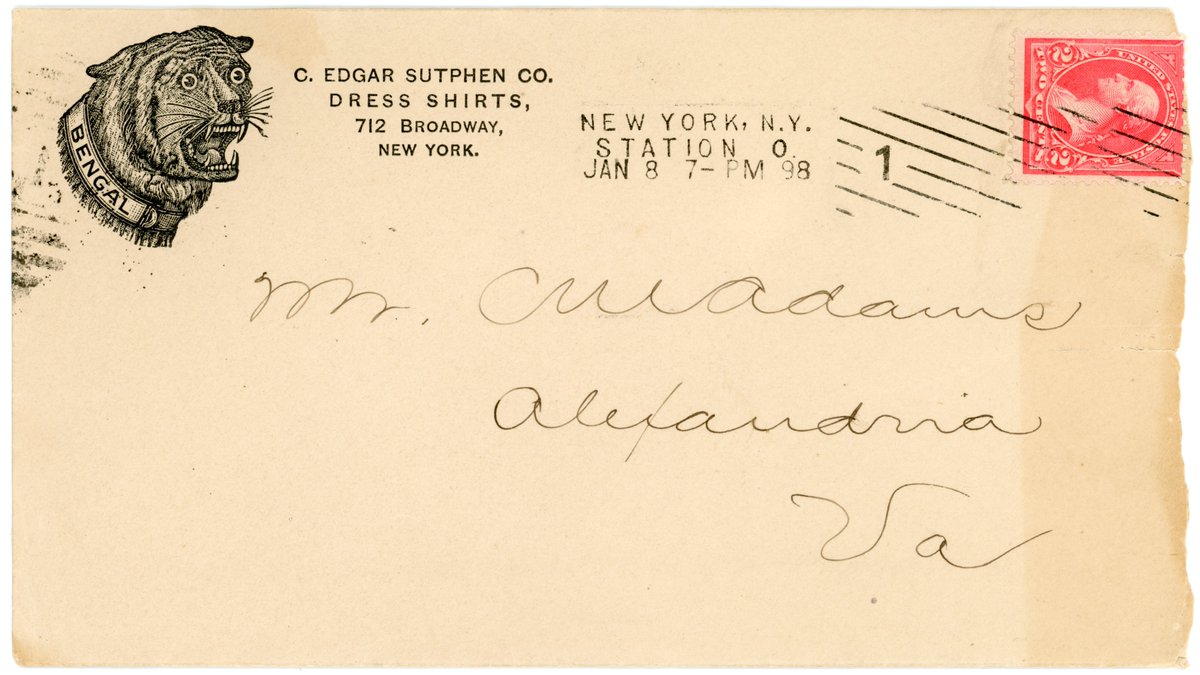 BENGAL
C. EDGAR SUTPHEN CO.
DRESS SHIRTS,
712 BROADWAY,
NEW YORK.
NEW YORK, N.Y.
STATION O.
JAN 8 7-PM 98
1
2 2
UNITED STATES
Mr. C M Adams
Alexandria
Va